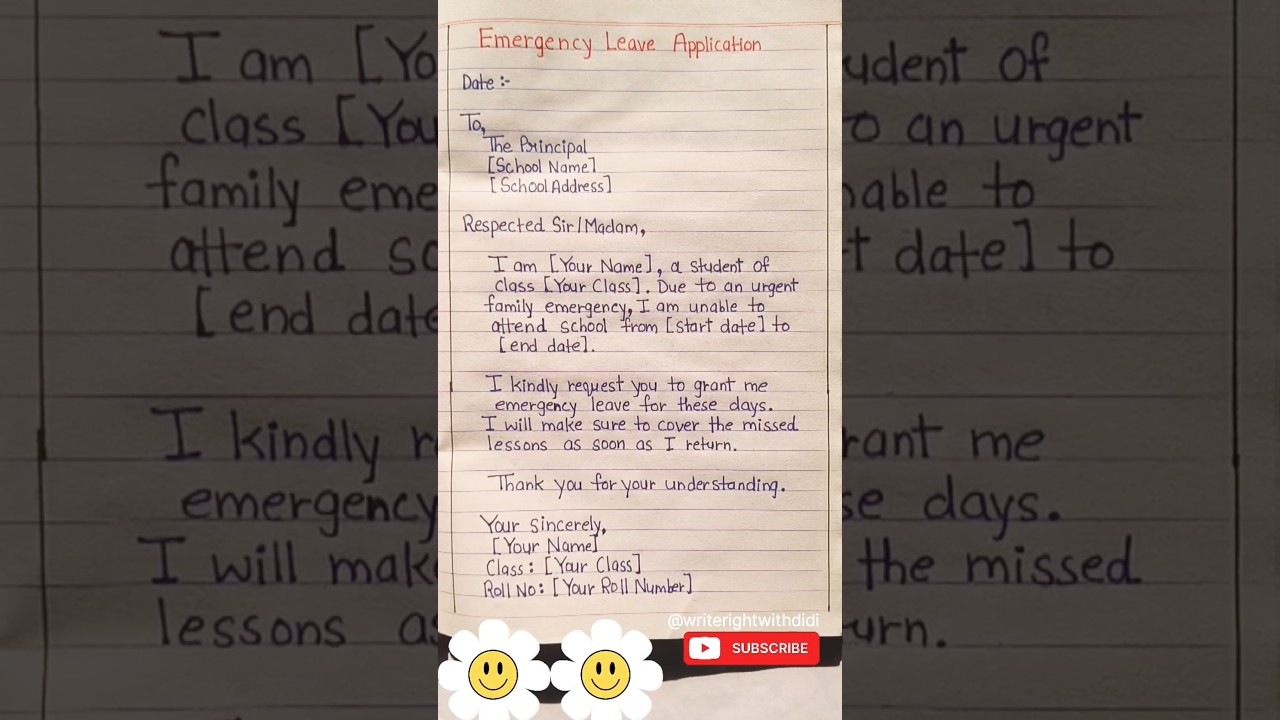 Emergency Leave Application
Date :-
To,
The Principal
[School Name]
[School Address]
Respected Sir/Madam,
I am [Your Name], a student of
class [Your Class]. Due to an urgent
family emergency, I am unable to
attend school from [start date] to
[end date].
I kindly request you to grant me
emergency leave for these days.
I will make sure to cover the missed
lessons as soon as I return.
Thank you for your understanding.
Your Sincerely,
[Your Name]
Class: [Your Class]
Roll No: [Your Roll Number]
@writerightwithdidi
SUBSCRIBE